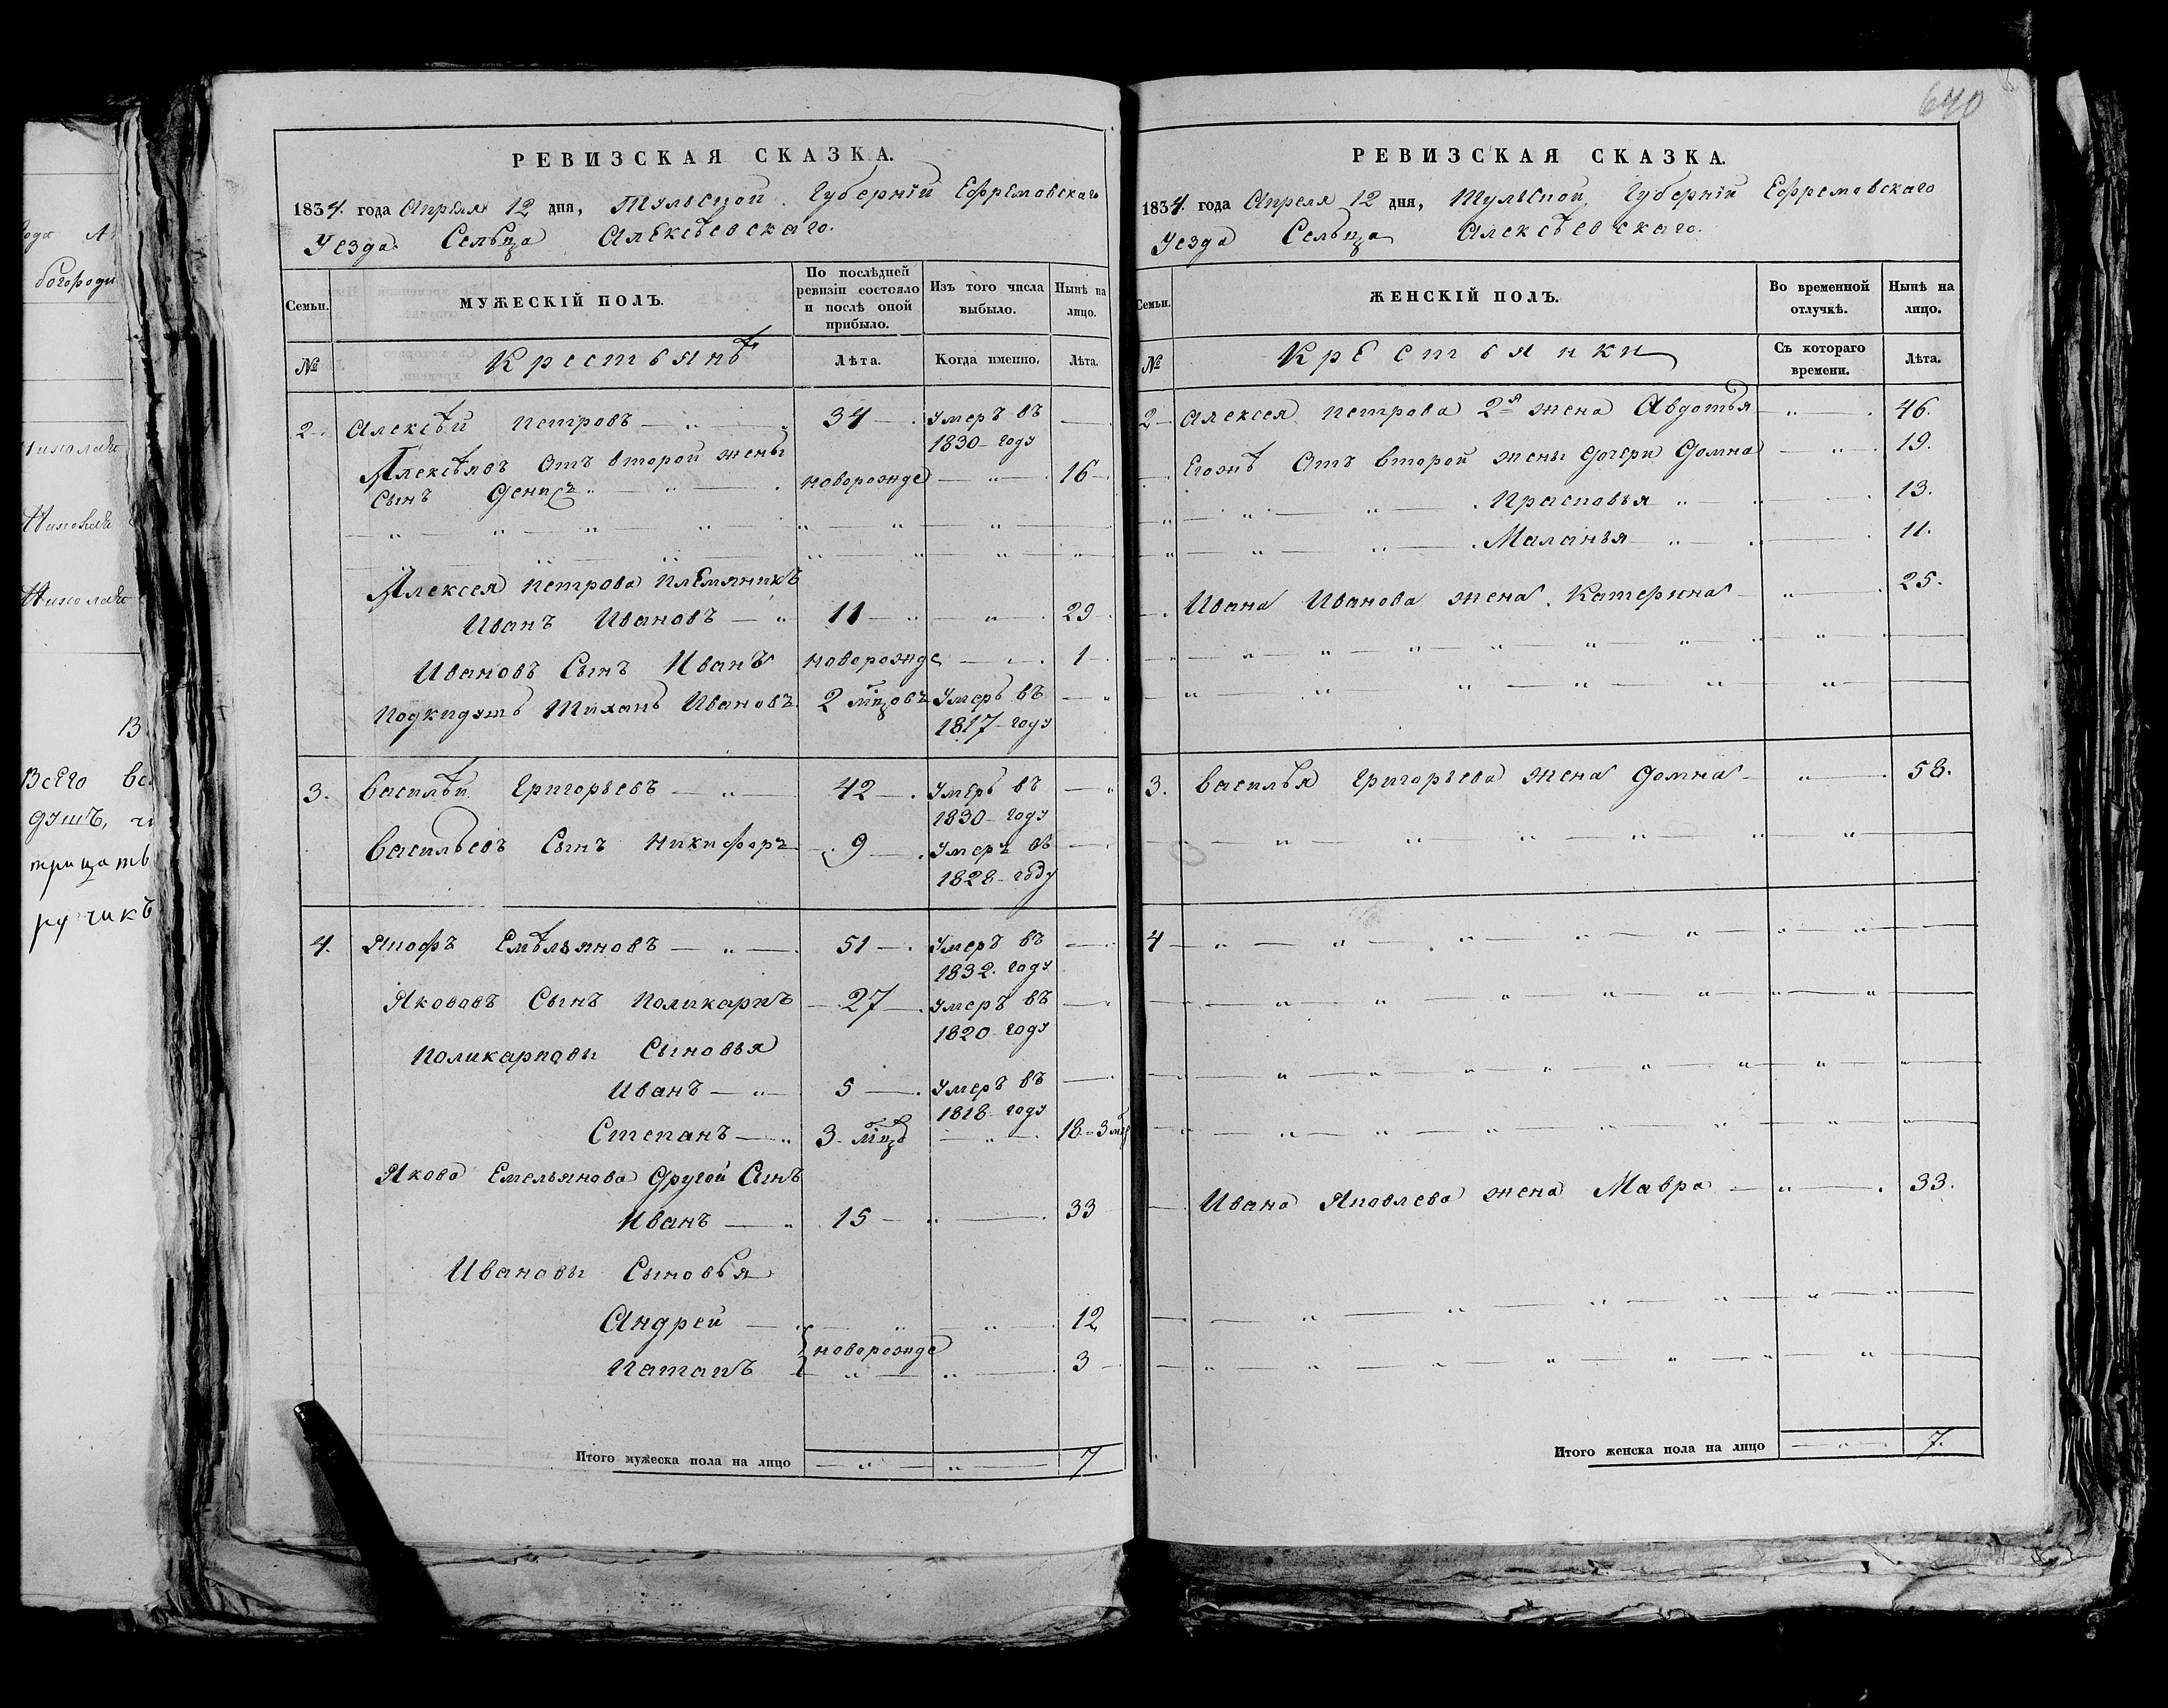 640
РЕВИЗСКАЯ СКАЗКА.
1834. года Апреля 12 дня, Тульской Губерніи Ефремовскаго
Уезда Сельца Алексѣевскаго.
Семьи.
МУЖЕСКІЙ ПОЛЪ.
По послѣдней ревизіи состояло и послѣ оной прибыло.
Изъ того числа выбыло.
Нынѣ на лицо.
№
Крестьянѣ
Лѣта.
Когда именно.
Лѣта.
2. Алексѣй Петровъ 34 Умеръ въ
1830 году
Алексѣявъ Отъ второй жены
Сынъ Денисъ новорожде 16
Алексея Петрова племянникъ
Иванъ Ивановъ 11 29
Ивановъ Сынъ Иванъ новорожде 1
Подкидышъ Тиханъ Ивановъ 2 мцовъ Умеръ въ
1817 году
3. Василѣй Григорьевъ 42 Умеръ въ
1830 году
Васильевъ Сынъ Никифоръ 9 Умеръ въ
1828 году
4. Якофъ Емѣльяновъ 51 Умеръ въ
1832. году
Якововъ Сынъ Поликарпъ 27 Умеръ въ
1820 году
Поликарповы Сыновья
Иванъ 5 Умеръ въ
1818 году
Степанъ 3 18 3
Якова Емельянова Другой Сынъ
Иванъ 15 33
Ивановы Сыновья
Андрей 12
новорожде
Патапъ 3
Итого мужеска пола на лицо 7
РЕВИЗСКАЯ СКАЗКА.
1834. года Апреля 12 дня, Тульской Губерніи Ефремовскаго
Уезда Сельца Алексѣевскаго.
Семьи.
ЖЕНСКІЙ ПОЛЪ.
Во временной отлучкѣ.
Нынѣ на лицо.
№
Крестьянки
Съ котораго времени.
Лѣта.
2 Алексея Петрова 2я жена Авдотья 46.
Егожѣ Отъ Второй жены дочери Домна 19.
Прасковья 13.
Маланья 11.
Ивана Иванова жена Катерина 25.
3. Василья Григорьева жена Домна 58.
4
Ивана Яковлева жена Мавра 33.
Итого женска пола на лицо 7.
богороди
Николая
Николая
Николая
Всего
душъ,